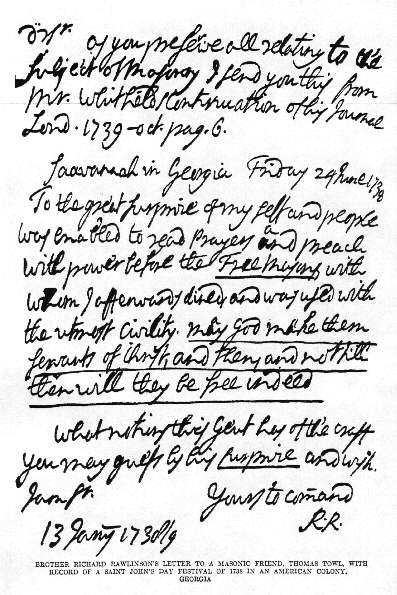 Dr Sr. as you preserve all relating to the
Subject of Masonry I send you this from
Mr. Whitfield's Continuation of his Journal
Lond. 1739 - oct. pag. 6.
Saavanah in Georgia Friday 24 June 1738
To the great surprise of my self and people
was enabled to read Prayers and preach
with power before the Free Masons with
whom I afterwards dined, and was used with
the utmost Civility. May God make them
servants of Christ, and then, and not till
then will they be free indeed
What notions this Gent has of the craft
you may guess by his surprise and wish.
I am Sr. Yours to comand
13 Jany 1738/9 R.R.
BROTHER RICHARD RAWLINSON'S LETTER TO A MASONIC FRIEND, THOMAS TOWL, WITH
RECORD OF A SAINT JOHN'S DAY FESTIVAL OF 1738 IN AN AMERICAN COLONY,
GEORGIA